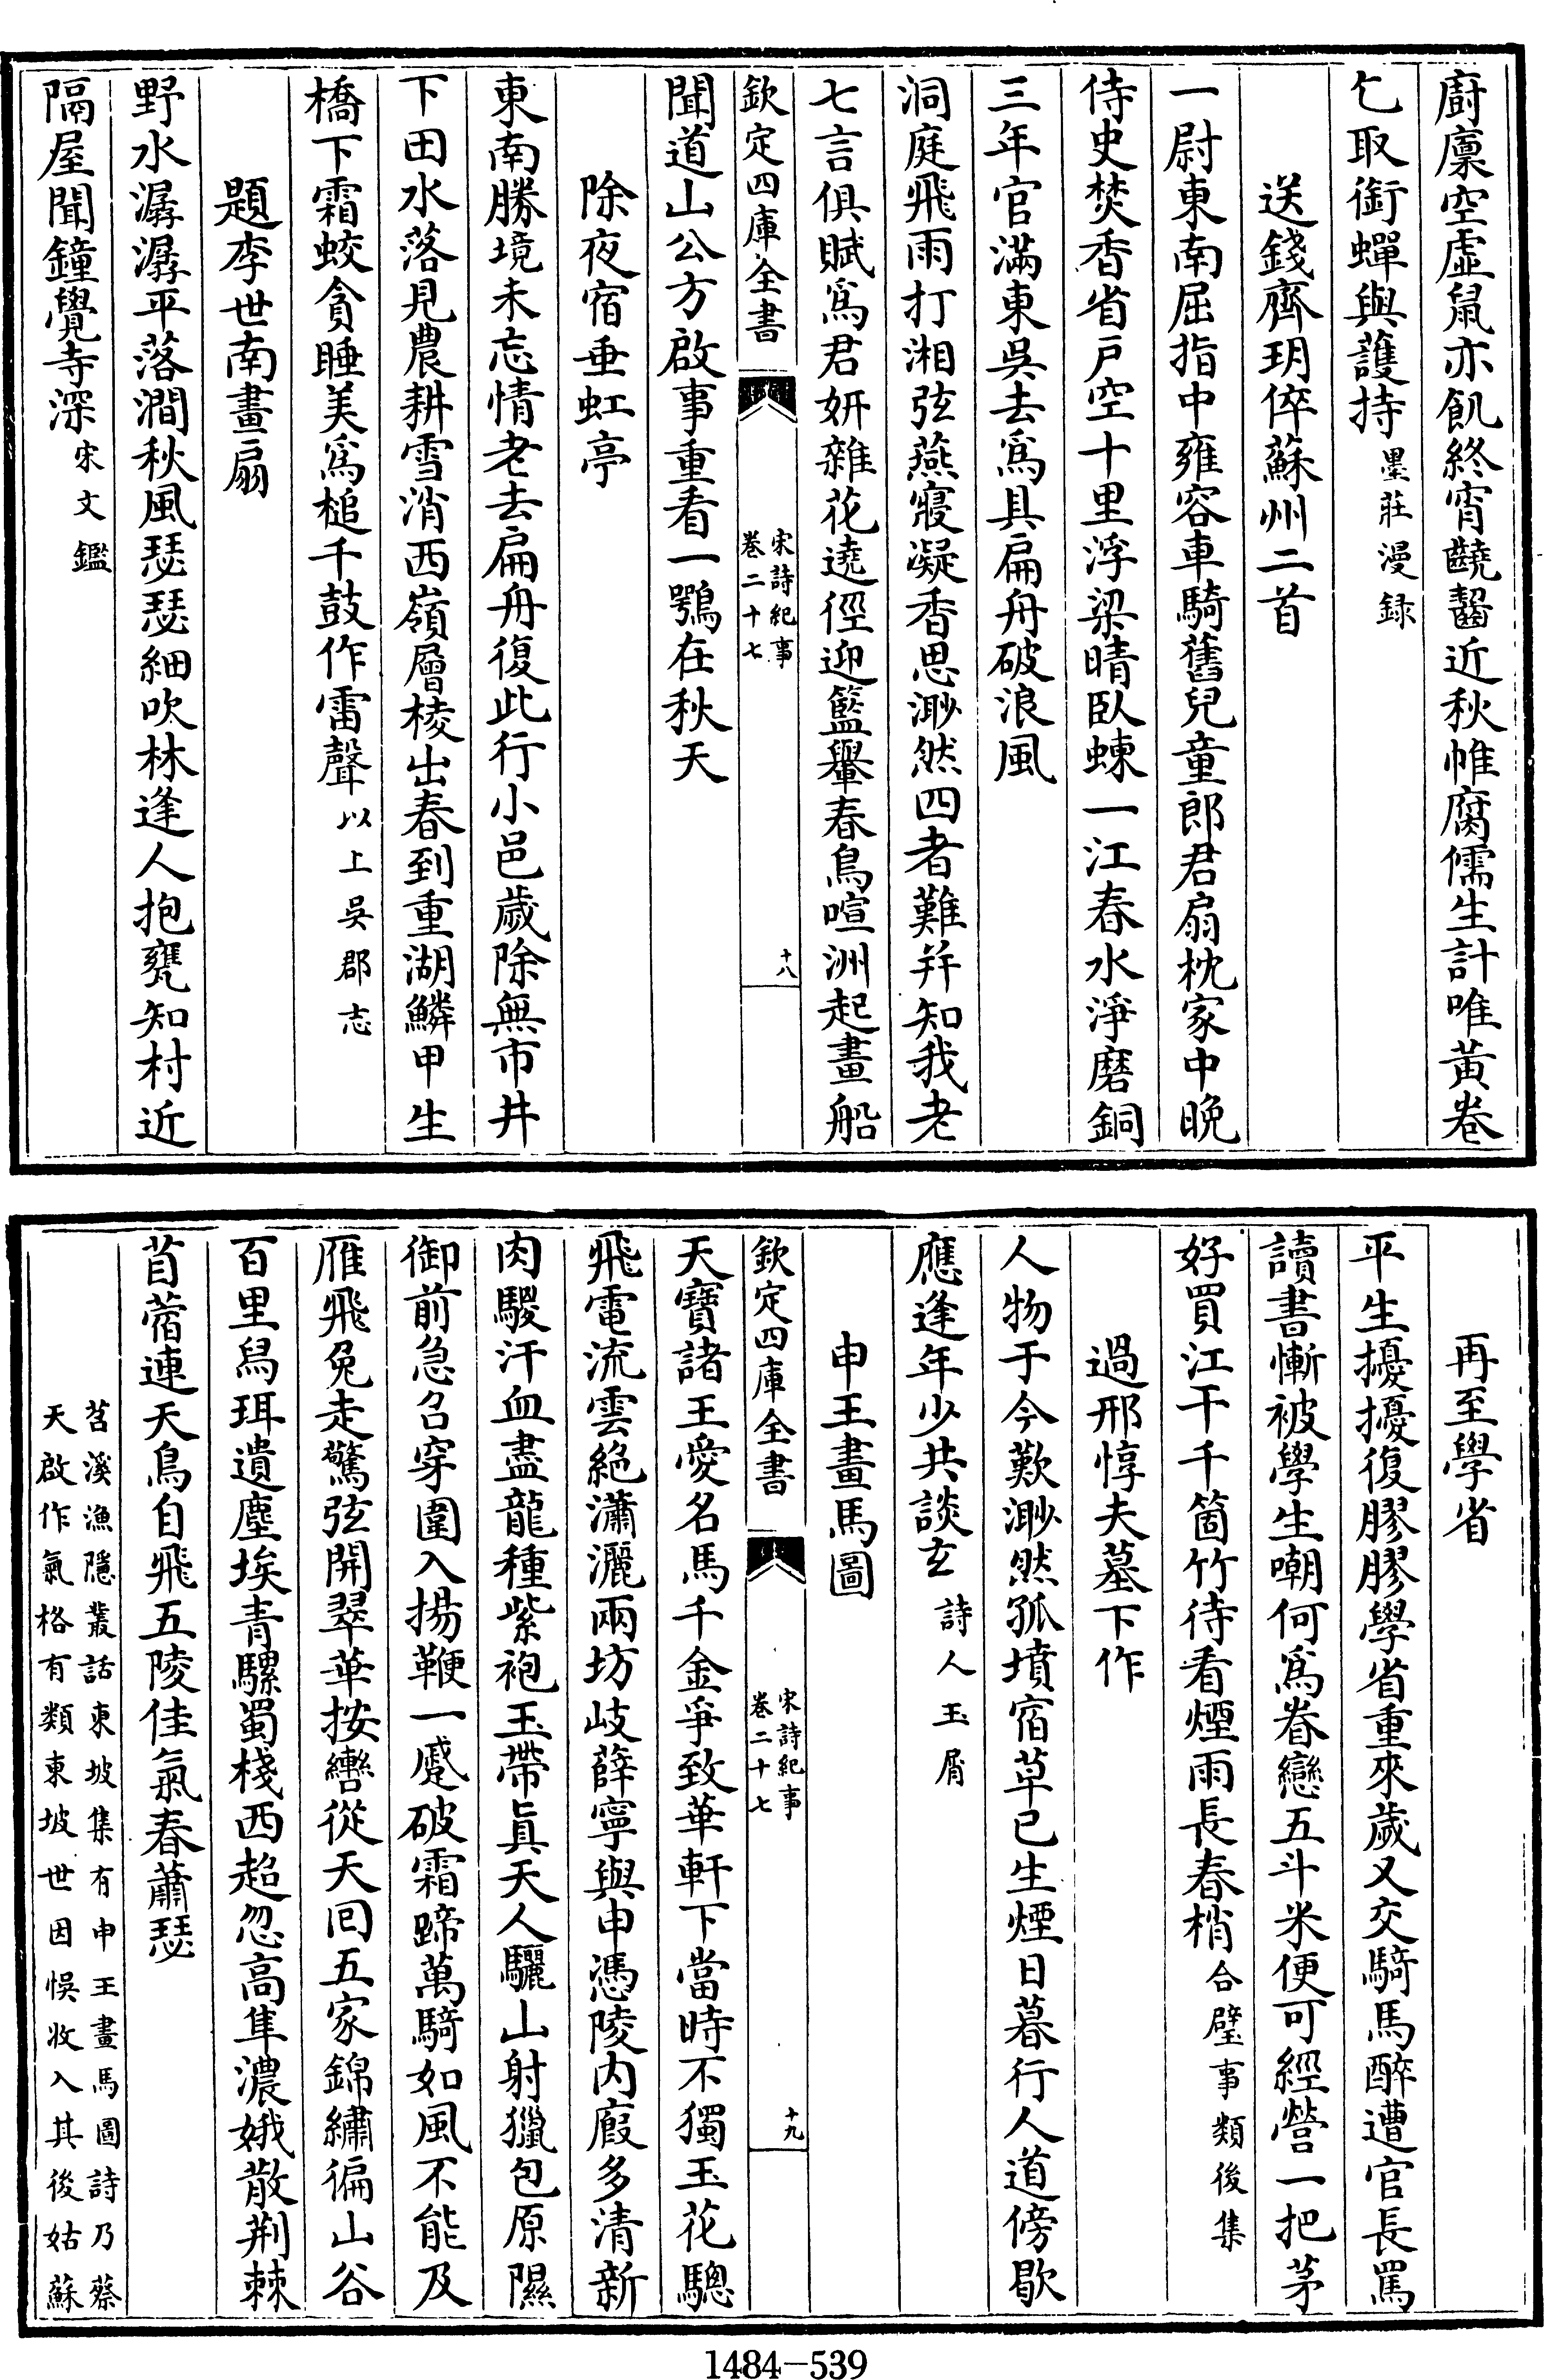 廚廪空虛鼠亦飢終宵齩齧近秋帷腐儒生計唯黃卷
乞取銜蟬與護持墨莊漫録
送錢齊玥倅蘇州二首
一尉東南屈指中雍容車騎舊兒童郎君扇枕家中晚
侍史焚香省戶空十里浮梁晴臥蝀一江春水淨磨銅
三年官滿東吳去爲具扁舟破浪風
洞庭飛雨打湘弦燕寢凝香思渺然四者難并知我老
七言俱賦爲君妍雜花遶徑迎籃轝春鳥喧洲起畫船
欽定四庫全書
宋詩紀事
卷二十七
十八
聞道山公方啟事重看一鶚在秋天
除夜宿垂虹亭
東南勝境未忘情老去扁舟復此行小邑歲除無市井
下田水落見農耕雪消西嶺層棱出春到重湖鱗甲生
橋下霜蛟貪睡美爲槌千鼓作雷聲以上吳郡志
題李世南畫扇
野水潺潺平落澗秋風瑟瑟細吹林逢人抱甕知村近
隔屋聞鐘覺寺深宋文鑑
再至學省
平生擾擾復膠膠學省重來歲又交騎馬醉遭官長罵
讀書慚被學生嘲何爲眷戀五斗米便可經營一把茅
好買江干千箇竹待看煙雨長春梢合璧事類後集
過邢惇夫墓下作
人物于今歎渺然孤墳宿草已生煙日暮行人道傍歇
應逢年少共談玄詩人玉屑
申王畫馬圖
欽定四庫全書
宋詩紀事
卷二十七
十九
天寶諸王愛名馬千金爭致華軒下當時不獨玉花驄
飛電流雲絶瀟灑兩坊岐薛寧與申憑陵内廄多清新
肉騣汗血盡龍種紫袍玉帶眞天人驪山射獵包原隰
御前急召穿圍入揚鞭一蹙破霜蹄萬騎如風不能及
雁飛兔走驚弦開翠華按轡從天回五家錦繡徧山谷
百里舄珥遺塵埃青騾蜀棧西超忽高隼濃娥散荆棘
苜蓿連天鳥自飛五陵佳氣春蕭瑟
苕溪漁隱叢話東坡集有申王畫馬圖詩乃蔡
天啟作氣格有類東坡世因悞收入其後姑蘇
1484-539